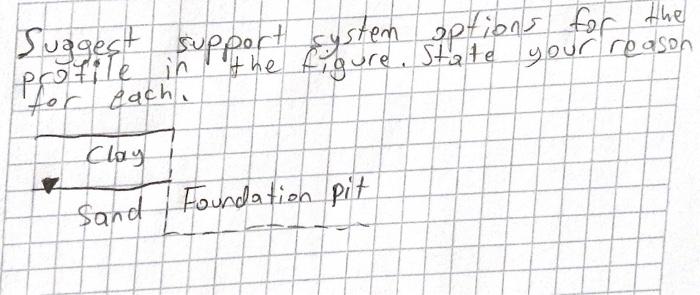 Suggest support system options for the
profile in the figure. State your reason
for each.
Clay
Sand
Foundation pit